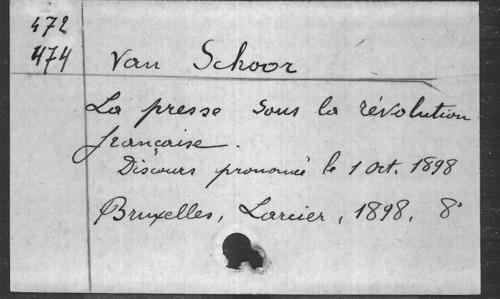 472
474
Van Schoor
La presse sous la révolution
française.
Discours prononcé le 1 Oct. 1898
Bruxelles, Larcier, 1898, 8°